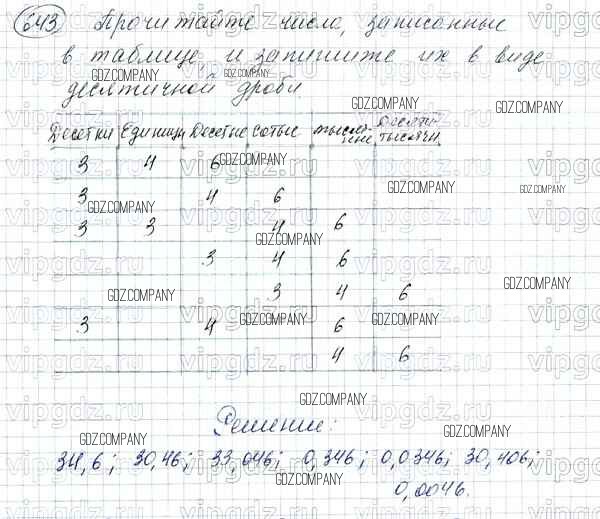 643 Прочитайте числа, записанные
в таблице, и запишите их в виде
десятичной дроби.
Десятки Единицы Десятые сотые тысячные Десятитысячн.
3 4 6
3 4 6
3 3 4 6
3 4 6
3 4 6
3 4 6
4 6
Решение:
34,6; 30,46; 33,046; 0,346; 0,0346; 30,406;
0,0046.
GDZ.COMPANY
vipgdz.ru